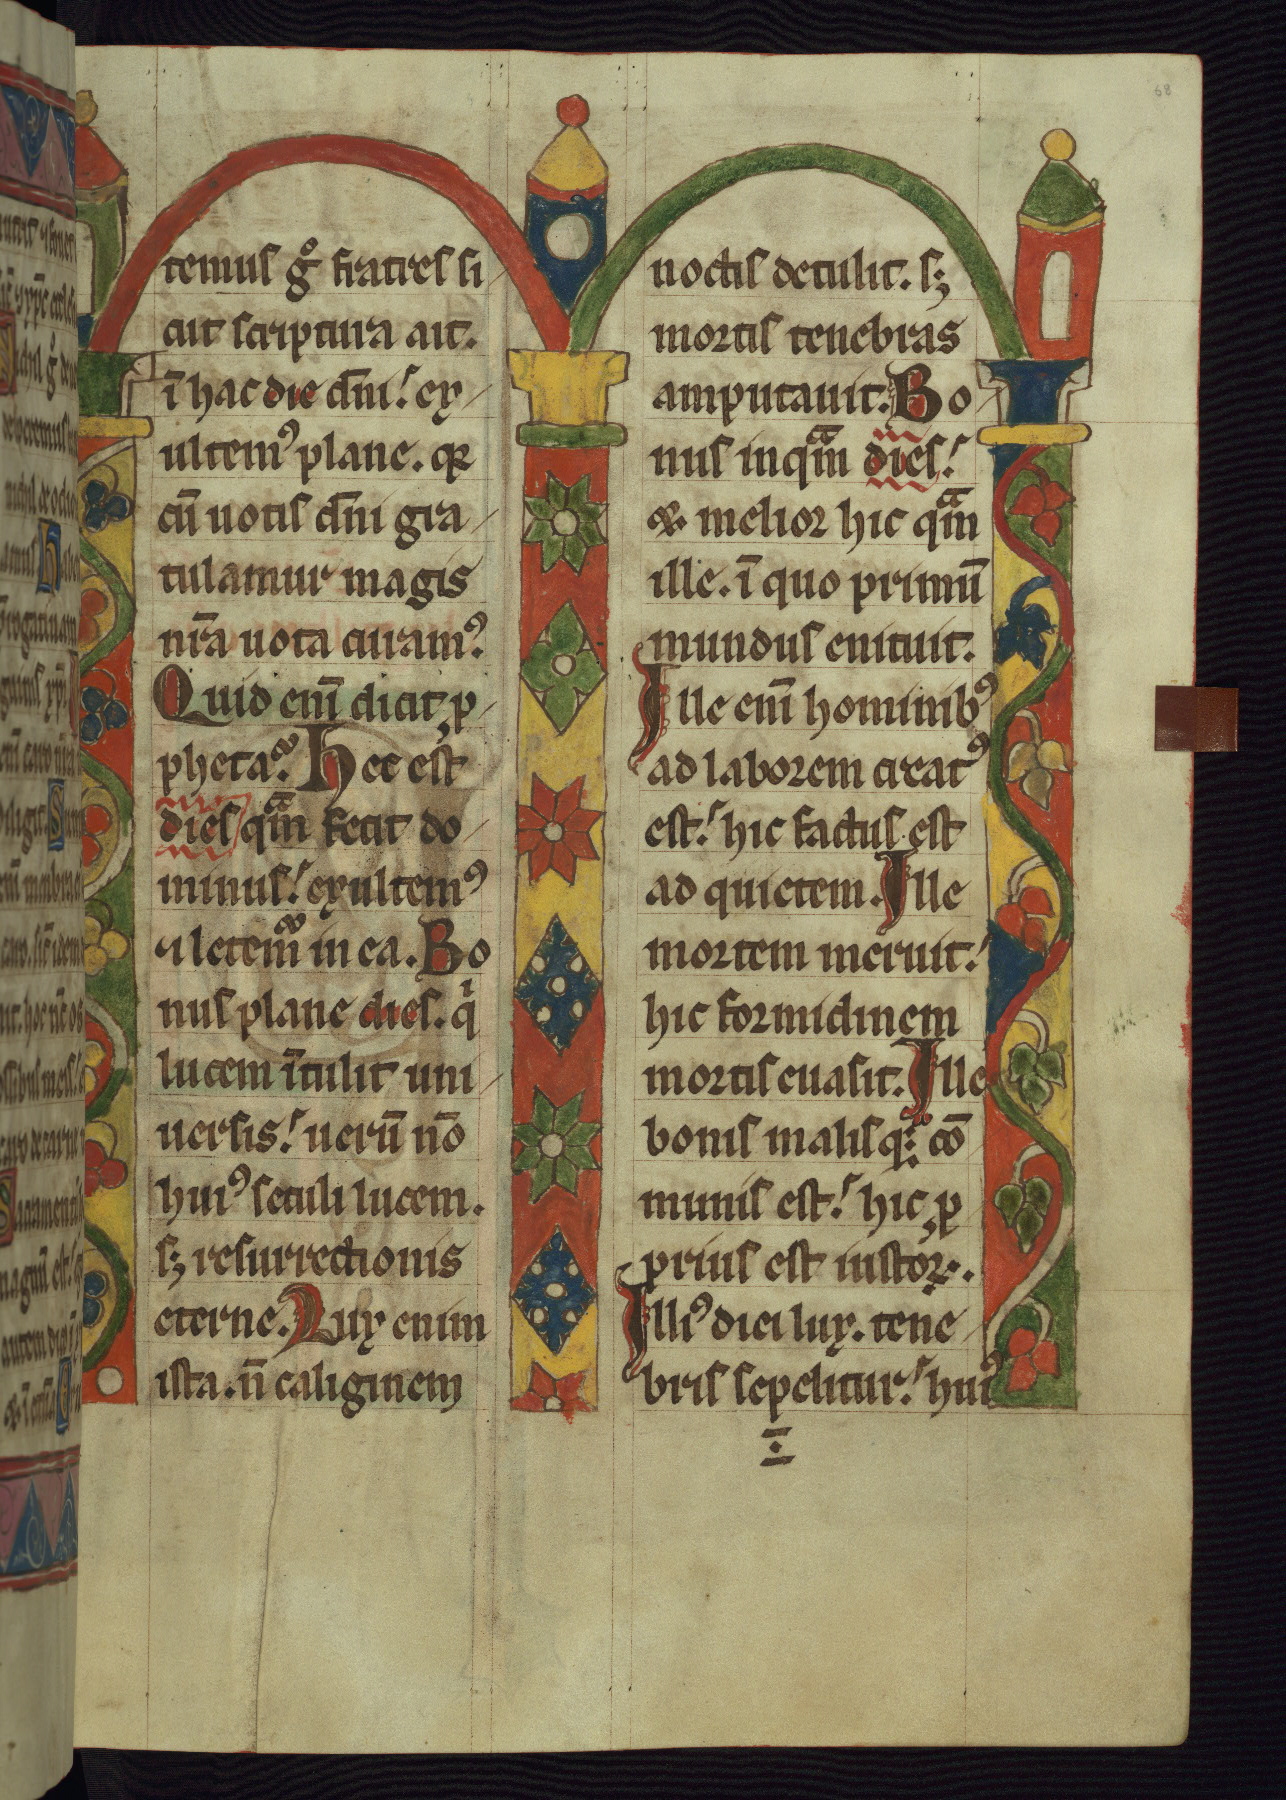 temus gͦ fratres si
cut scriptura ait.
ī hac die dn̄i! ex
ultemꝰ plane. qꝛ
cū uotis dn̄i gra
tulamur magis
nr̄a uota curamꝰ.
Quid enī dicit, ꝓ
pheta? Hec est
dies qͣm fecit do
minus! exultemꝰ
⁊ letem̄ in ea. Bo
nus plane dies. qͥ
lucem ītulit uni
uersis! uerū nō
huiꝰ seculi lucem.
sꝫ resurrectionis
eterne. Lux enim
ista. n̄ caliginem
noctis detulit. sꝫ
mortis tenebras
amputauit. Bo
nus inqͣm dies!
⁊ melior hic qͣm
ille. ī quo primū
mundus enituit.
Ille enī hominibꝰ
ad laborem creatꝰ
est! hic factus est
ad quietem. Ille
mortem meruit!
hic formidinem
mortis euasit. Ille
bonis malisqꝫ cō
munis est! hic, ꝓ
prius est iustoꝝ.
Illiꝰ diei lux. tene
bris sepelitur! huiꝰ
68